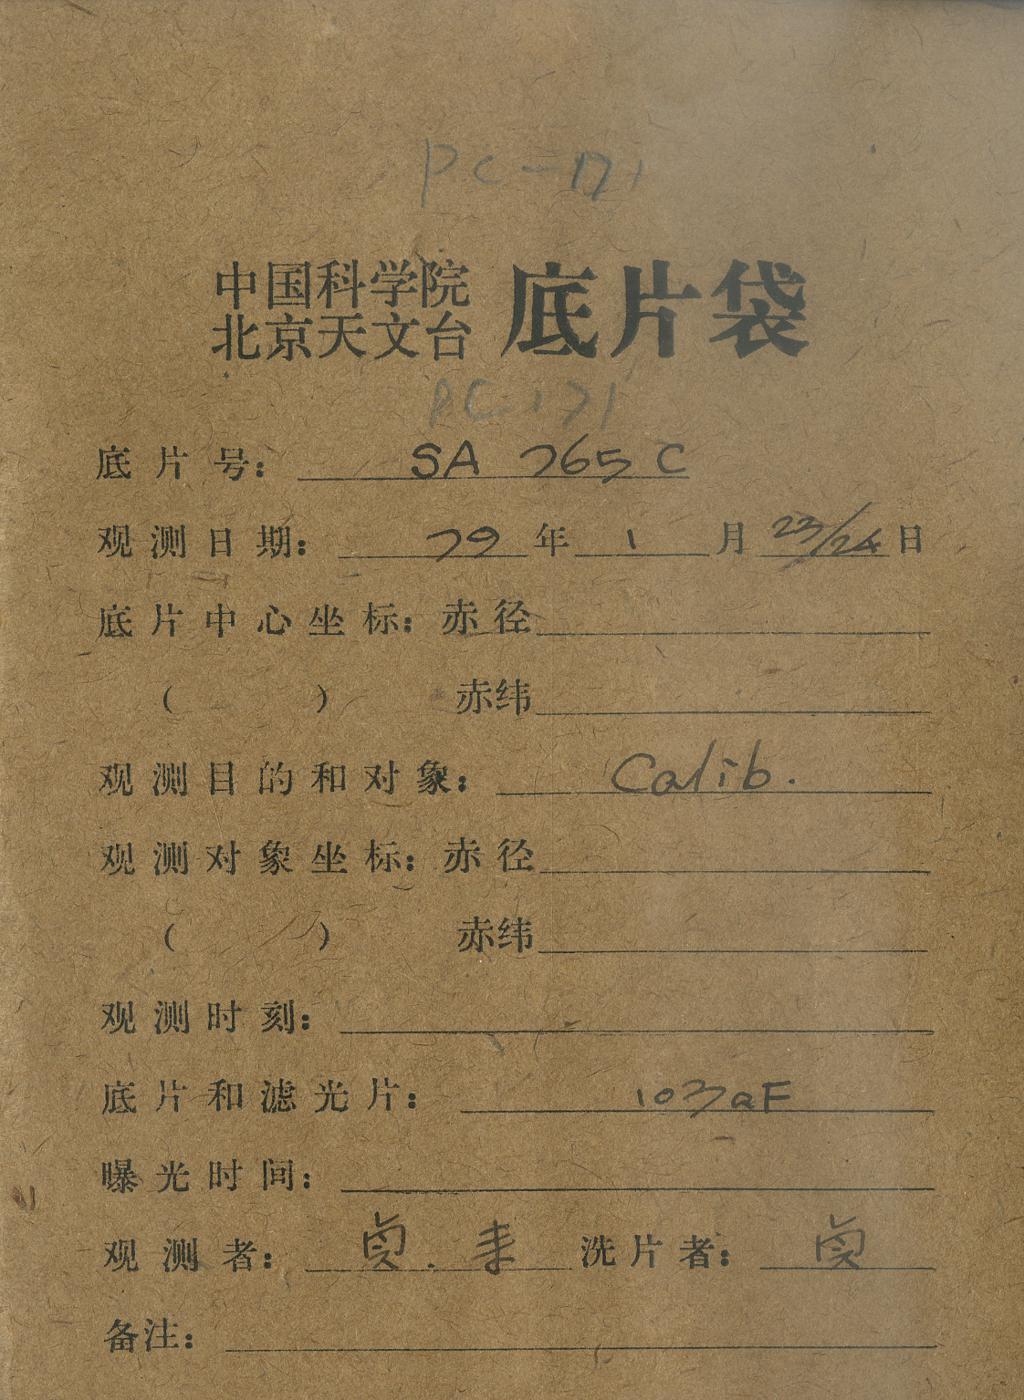 PC-171
中国科学院
北京天文台 底片袋
PC 171
底片号: SA 765 C
观测日期: 79年1月23/24日
底片中心坐标: 赤径
( ) 赤纬
观测目的和对象: Calib.
观测对象坐标: 赤径
( ) 赤纬
观测时刻:
底片和滤光片: 103aF
曝光时间:
观测者: 洗片者:
备注: